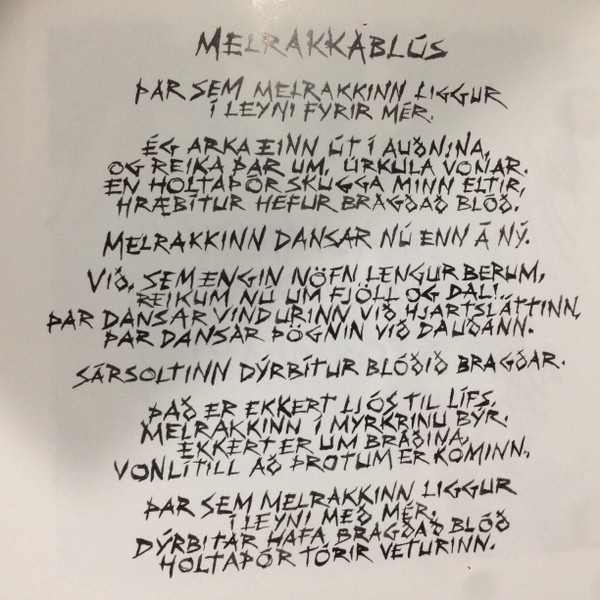 MELRAKKABLÚS
ÞAR SEM MELRAKKINN LIGGUR
Í LEYNI FYRIR MÉR.
ÉG ARKA EINN ÚT Í AUÐNINA,
OG REIKA ÞAR UM, ÚRKULA VONAR.
EN HOLTAÞÓR SKUGGA MINN ELTIR,
HRÆBÍTUR HEFUR BRAGÐAÐ BLÓÐ.
MELRAKKINN DANSAR NÚ ENN Á NÝ.
VIÐ, SEM ENGIN NÖFN LENGUR BERUM,
REIKUM NÚ UM FJÖLL OG DALI.
ÞAR DANSAR VINDURINN VIÐ HJARTSLÁTTINN,
ÞAR DANSAR ÞÖGNIN VIÐ DAUÐANN.
SÁRSOLTINN DÝRBÍTUR BLÓÐIÐ BRAGÐAR.
ÞAÐ ER EKKERT LJÓS TIL LÍFS,
MELRAKKINN Í MYRKRINU BÝR.
EKKERT ER UM BRÁÐINA,
VONLÍTILL AÐ ÞROTUM ER KOMINN,
ÞAR SEM MELRAKKINN LIGGUR
Í LEYNI MEÐ MÉR.
DÝRBITAR HAFA BRAGÐAÐ BLÓÐ
HOLTAÞÓR TÓRIR VETURINN.